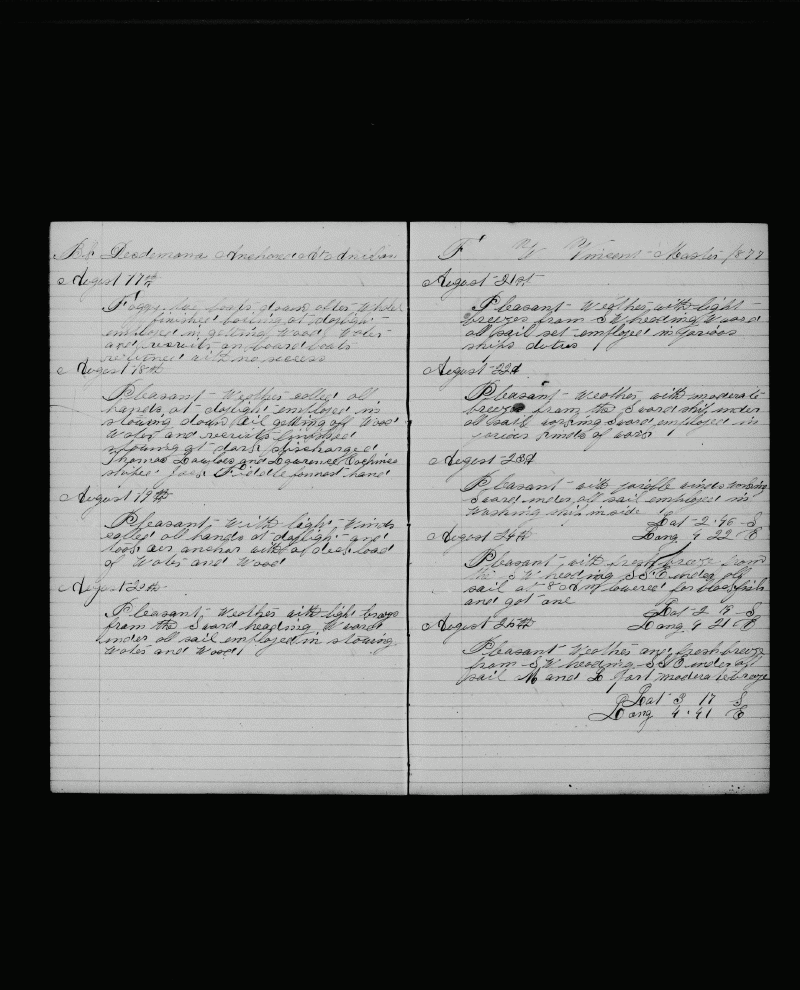 Bk Desdemona Anchored At
August 17th
Foggy
finished boiling at dayligh
employed in getting Wood Water
and recruits on board boats
returned with no success
August 18th
Pleasant Weather called all
hands at dayligh employed in
stowing down oil getting off Wood
Water and recruits finished
stowing at dark discharged
Thomas and Lawrence
shiped Joas
August 19th
Pleasant With ligh Winds
called all hands at dayligh and
took our anchor with a deck load
of Water and Wood
August 20th
Pleasant Weather with ligh breeze
from the S ward heading W ward
under all sail employed in stowing
Water and Wood
F Vincent Master 1877
August 21st
Pleasant Weather with light
breezes from S W heading W ward
all sail set employed in varios
ships duties
August 22d
Pleasant Weather with moderate
breeze from the S ward ship under
all sail working S ward employed in
varios kinds of work
August 23d
Pleasant with varible winds working
S ward under all sail employed in
Washing ship inside
Lat 2 46 S
August 24th Long 4 22 E
Pleasant with fresh breeze from
the S W heading S S E under all
sail at 8 A M lowered for blackfish
and got one
Lat 2 18 S
August 25th Long 4 21 E
Pleasant Weather and fresh breeze
from S W heading S S E under all
sail M and L part moderate breeze
Lat 3 17 S
Long 4 41 E